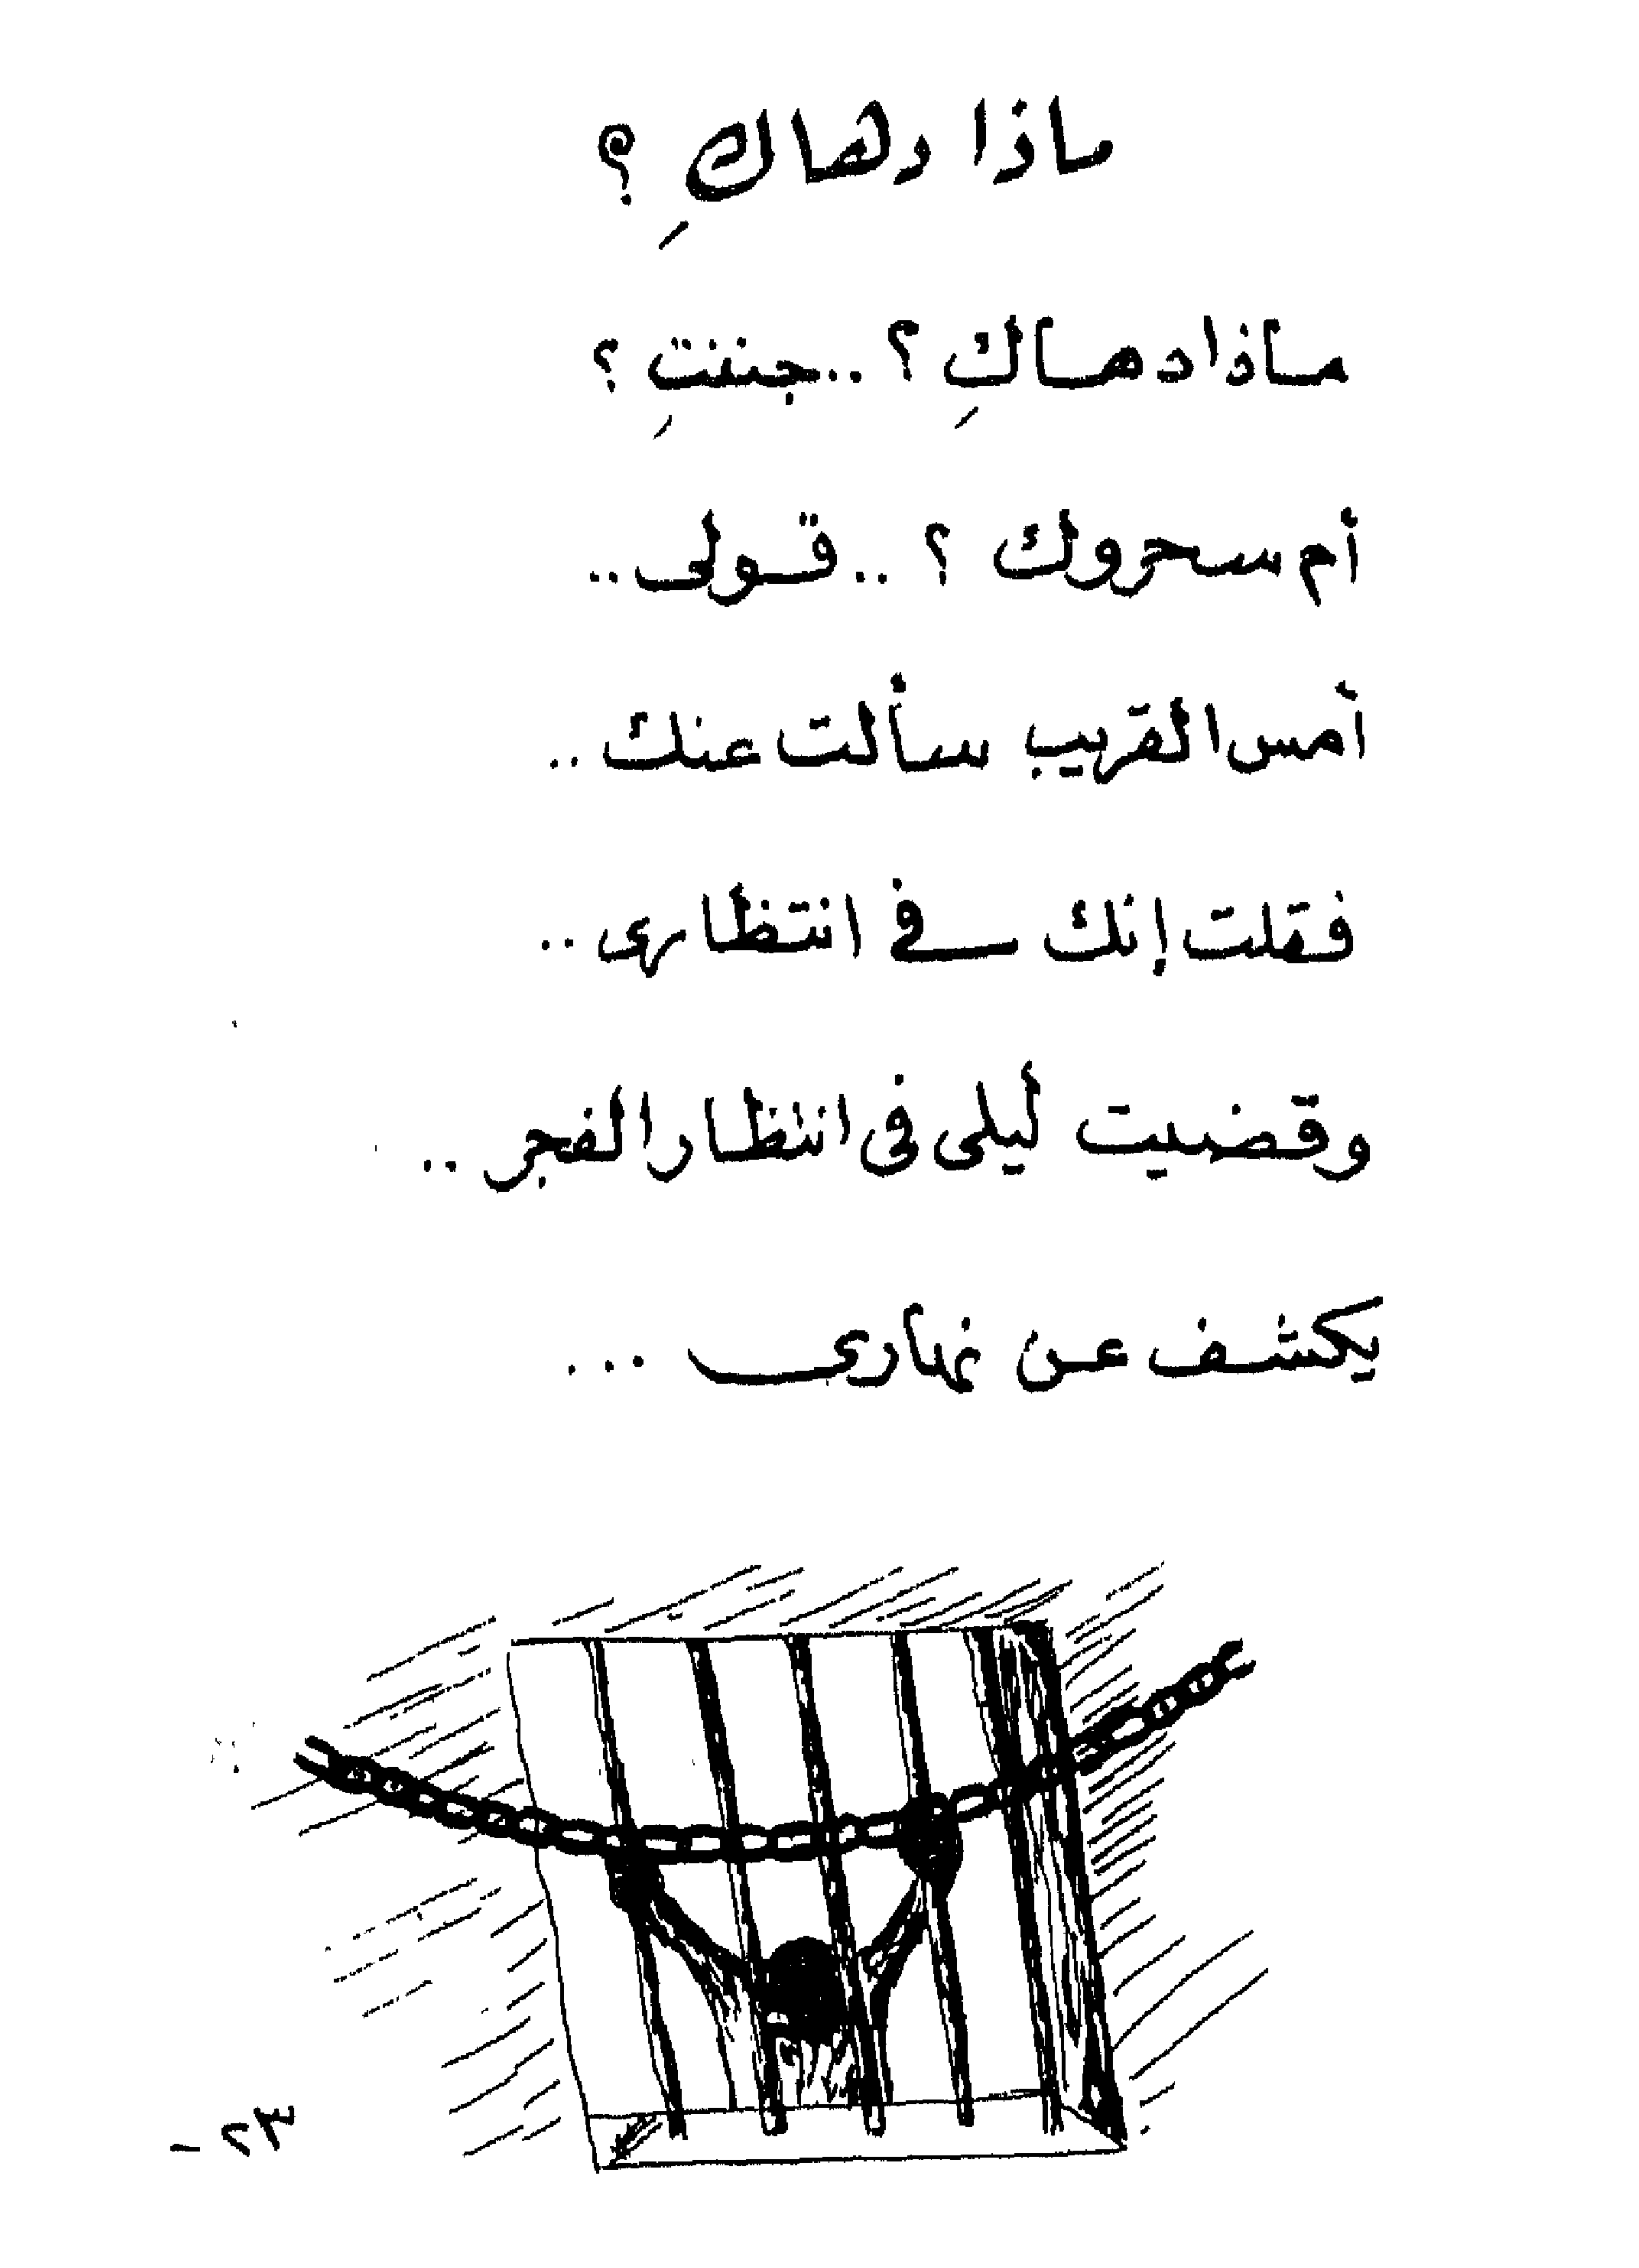 ماذا دهاكِ ؟
ماذا دهاكِ ؟ .. جننتِ ؟
أم سحروك ؟ .. قولى ..
أمس القريب سألت عنك ..
فقلت إنك في انتظارى ..
وقضيت ليلى فى انتظار الفجر ..
يكشف عن نهارى ...